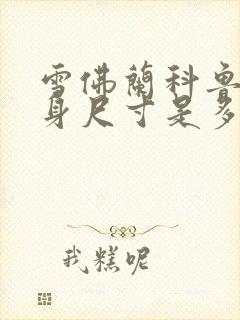 雪佛蘭科魯
身尺寸是多
我糕呢